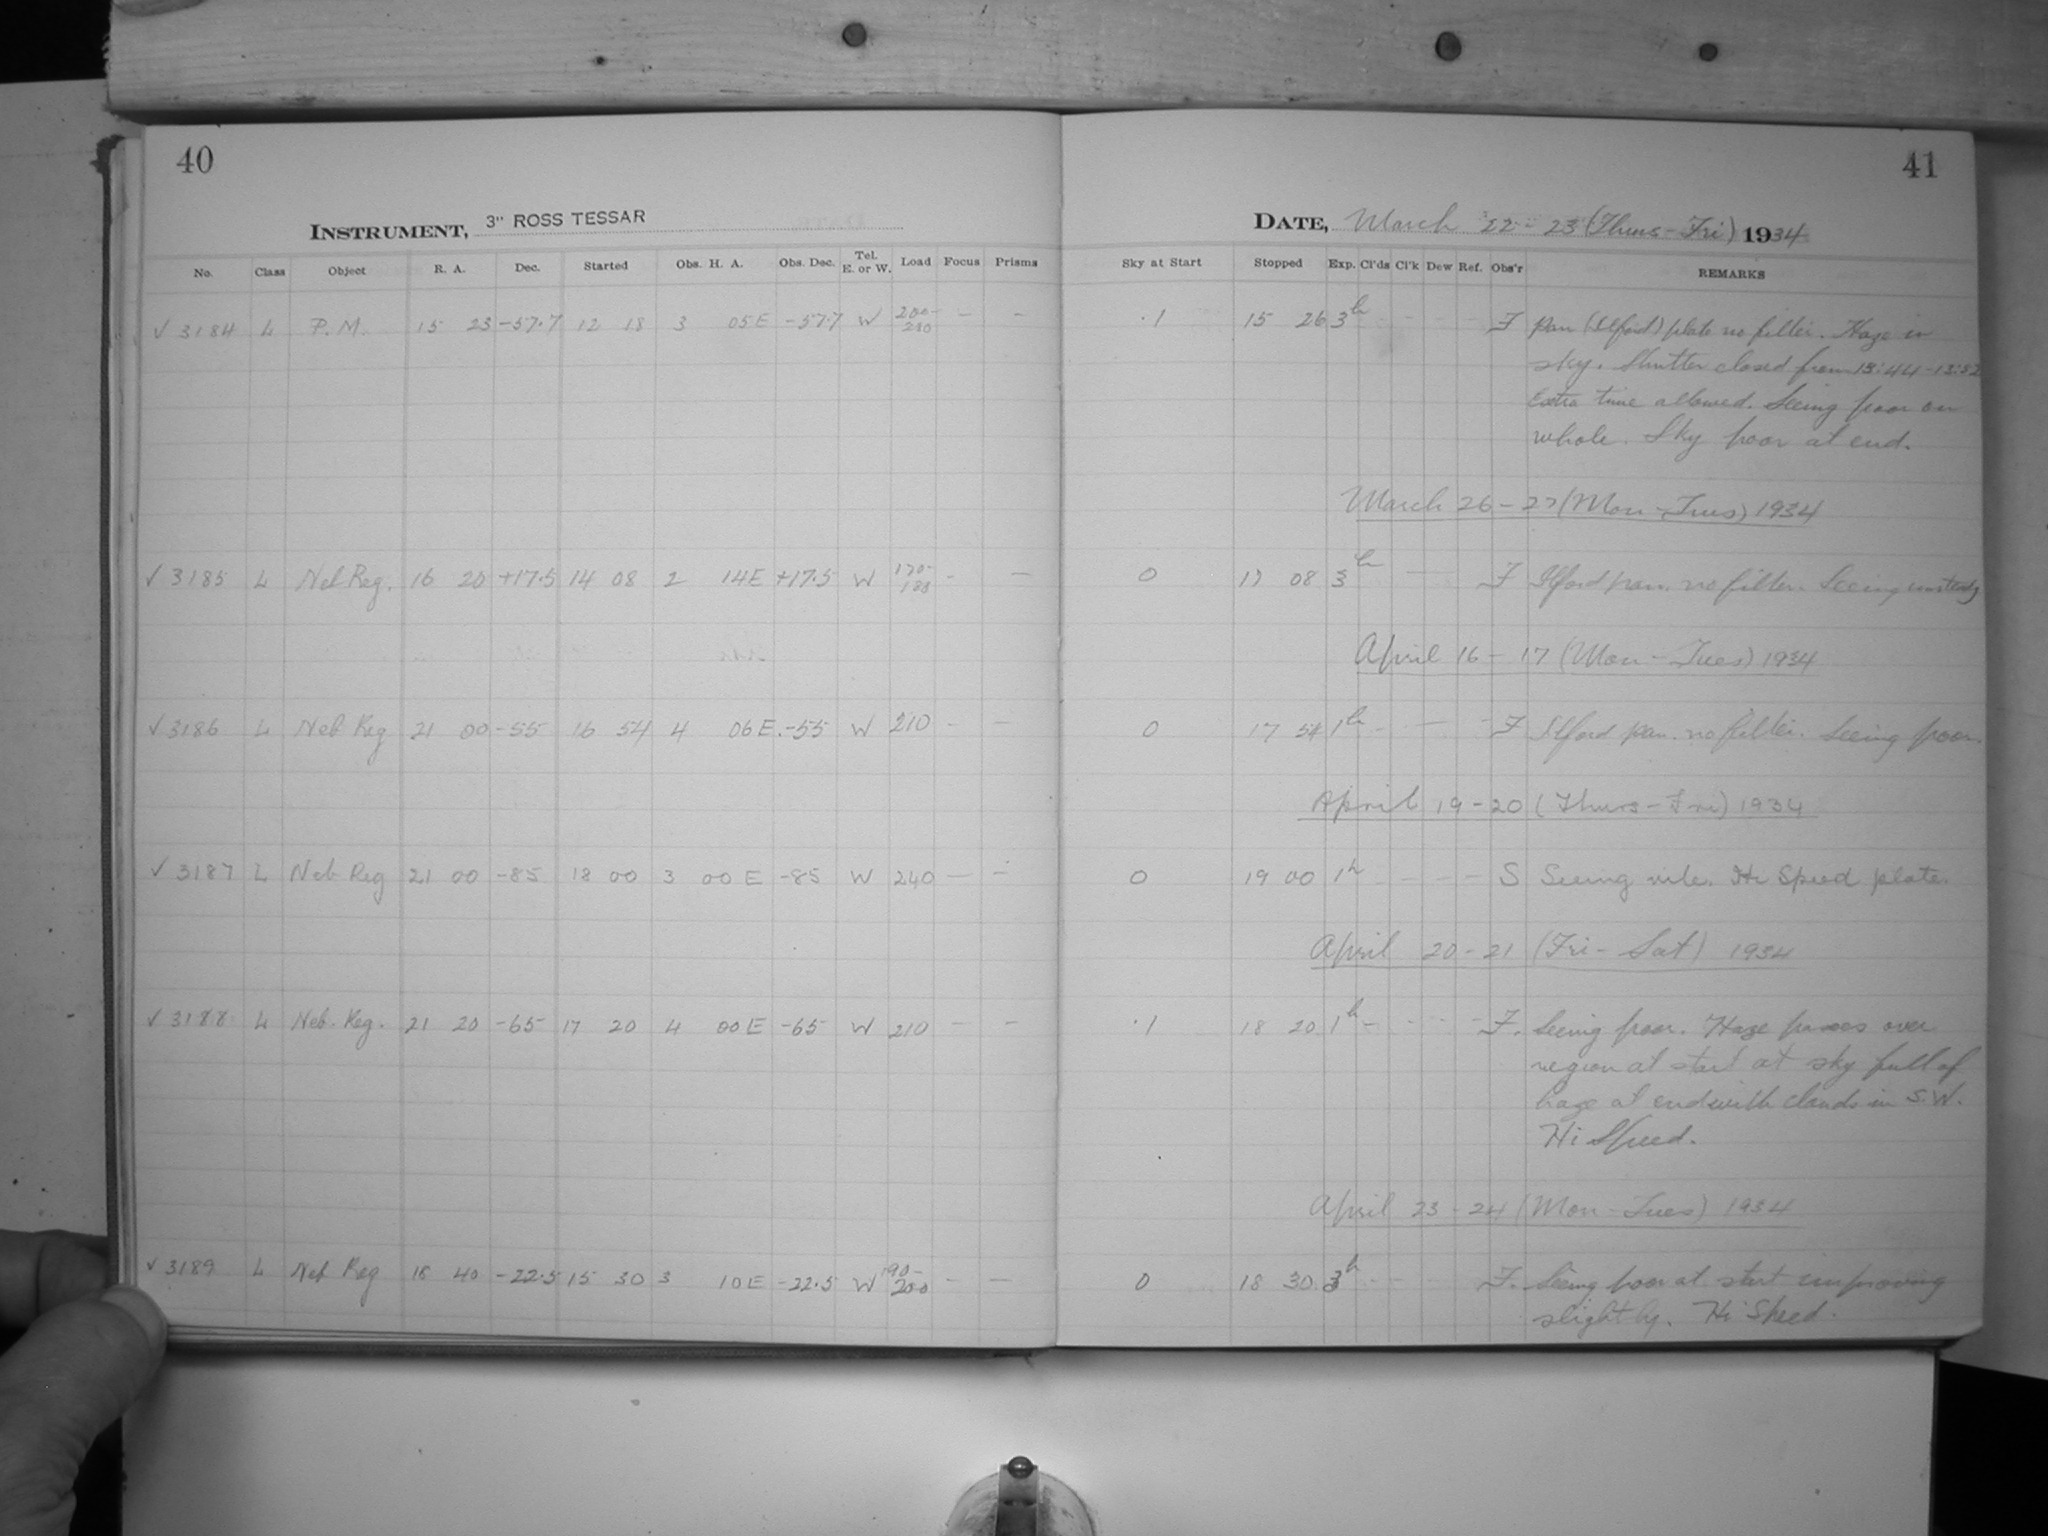 40
INSTRUMENT, 3" ROSS TESSAR
No. Class Object R. A. Dec. Started Obs. H. A. Obs. Dec. Tel. E. or W. Load Focus Prisms
✓ 3184 L P.M. 15 23 -57.7 12 18 3 05E -57.7 W 200- 210 - -
✓ 3185 L Neb Reg. 16 20 +17.5 14 08 2 14E +17.5 W 170- 180 - -
✓ 3186 L Neb Reg 21 00 -55 16 54 4 06E -55 W 210 - -
✓ 3187 L Neb Reg 21 00 -85 18 00 3 00E -85 W 240 - -
✓ 3188 L Neb. Reg. 21 20 -65 17 20 4 00E -65 W 210 - -
✓ 3189 L Neb Reg 18 40 -22.5 15 30 3 10E -22.5 W 190- 200 - -
41
DATE, March 22-23 (Thurs-Fri) 1934
Sky at Start Stopped Exp. Cl'ds Cl'k Dew Ref. Obs'r REMARKS
.1 15 26 3h - - - - F Pan (Ilford) plate no filter. Haze in
sky. Shutter closed from 13:44-13:52
Extra time allowed. Seeing poor on
whole. Sky poor at end.
March 26-27 (Mon-Tues) 1934
0 17 08 3h - - F Ilford pan. no filter. Seeing unsteady
April 16-17 (Mon-Tues) 1934
0 17 54 1h - - - F Ilford pan. no filter. Seeing poor.
April 19-20 (Thurs-Fri) 1934
0 19 00 1h - - - - S Seeing vile. Hi Speed plate.
April 20-21 (Fri-Sat) 1934
.1 18 20 1h - - - - F. Seeing poor. Haze passes over
region at start at sky full of
haze at end with clouds in S.W.
Hi Speed.
April 23-24 (Mon-Tues) 1934
0 18 30 3h - - - F. Seeing poor at start improving
slightly. Hi Speed.